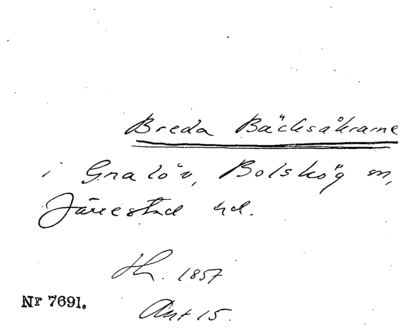 Breda Bäcksåkrarne
i Gnalöv, Bolshög sn,
Järrestad hd.
Hh. 1857
Akt 15.
Nr 7691.